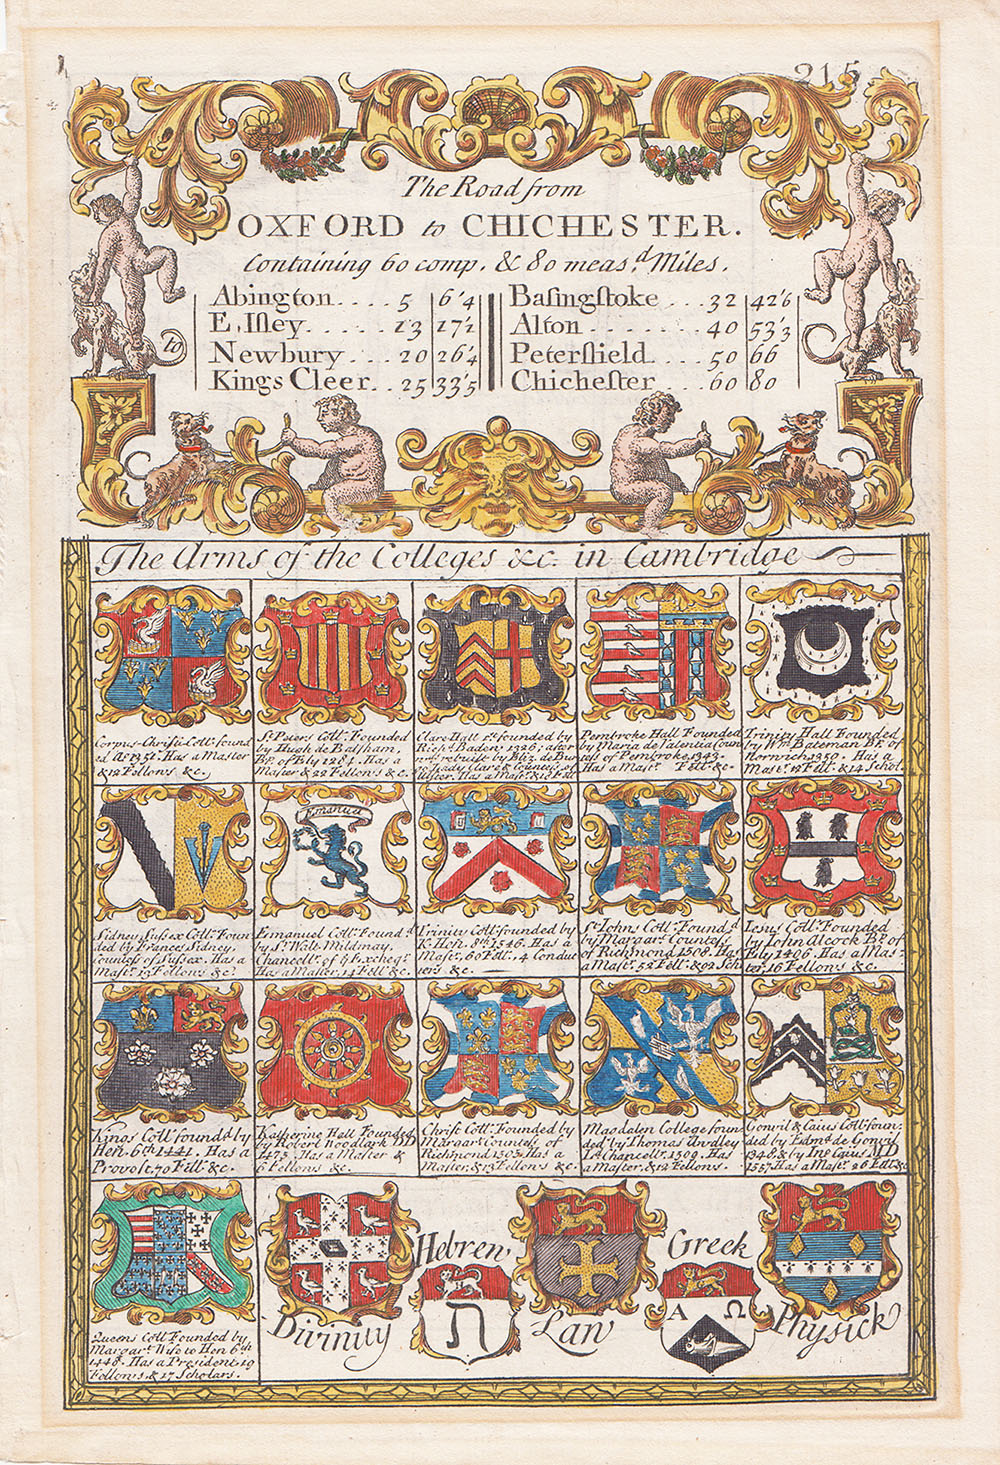 215
The Road from
OXFORD to CHICHESTER.
Containing 60 comp. & 80 meas.d Miles.
Abington.... 5 6'4
E. Isley...... 13 17'2
Newbury... 20 26'4
Kings Cleer.. 25 33'5
Basingstoke... 32 42'6
Alton........ 40 53'3
Petersfield... 50 66
Chichester... 60 80
to
The Arms of the Colleges &c. in Cambridge
Corpus-Christi Coll: found
ed Ao 1351. Has a Master
& 12 Fellows &c.
St. Peters Coll: Founded
by Hugh de Balsham,
Bp. of Ely 1284. Has a
Master & 22 Fellows &c.
Clare Hall founded by
Richd. Baden 1326; after
rebuilt by Eliz. de Bur
Lady Clare & Countess of
Ulster. Has a Mastr. & 18 Fell:
Pembroke Hall Founded
by Maria de Valentia Coun
tess of Pembroke 1343.
Has a Mastr. Fell: &c.
Trinity Hall Founded
by Wm. Bateman Bp. of
Norwich 1350. Has a
Mastr. 12 Fell: & 14 Schol.
Sidney Sussex Coll: Foun
ded by Frances Sidney,
Countess of Sussex. Has a
Mastr. 12 Fellows &c.
Emanuel
Emanuel Coll: Found:d
by Sr. Walt. Mildmay,
Chancellr. of ye Excheqr.
Has a Master, 14 Fell: &c.
Trinity Coll: founded by
K. Hen. 8th 1546. Has a
Mastr. 60 Fell:, 4 Conduc
ters &c.
St. Johns Coll: Found:d
by Margart. Countess
of Richmond 1508. Has
a Mastr. 52 Fell: & 92 Sch
Iesus Coll: Founded
by Iohn Alcock Bp. of
Ely 1496. Has a Mas-
ter, 16 Fellows &c.
Kings Coll: found'd by
Hen. 6th 1441. Has a
Provost, 70 Fell: &c.
Katherine Hall Founded
by Robert Woodlark DD
1475. Has a Master &
6 Fellows &c.
Christ Coll: Founded by
Margart. Countess of
Richmond 1505. Has a
Master, & 13 Fellows &c.
Magdalen College foun
ded by Thomas Audley
Ld. Chancellr. 1509. Has
a Master, & 12 Fellows.
Gonvil & Caius Coll: foun:
ded by Edmd. de Gonvil
1348 & by Ino. Caius MD
1557. Has a Mastr. 26 Fell: &c
Queens Coll: Founded by
Margart. Wife to Hen 6th
1448. Has a President, 19
Fellows, & 17 Scholars.
Divinity
Hebrew
ה
Law
Greek
Α Ω
Physick